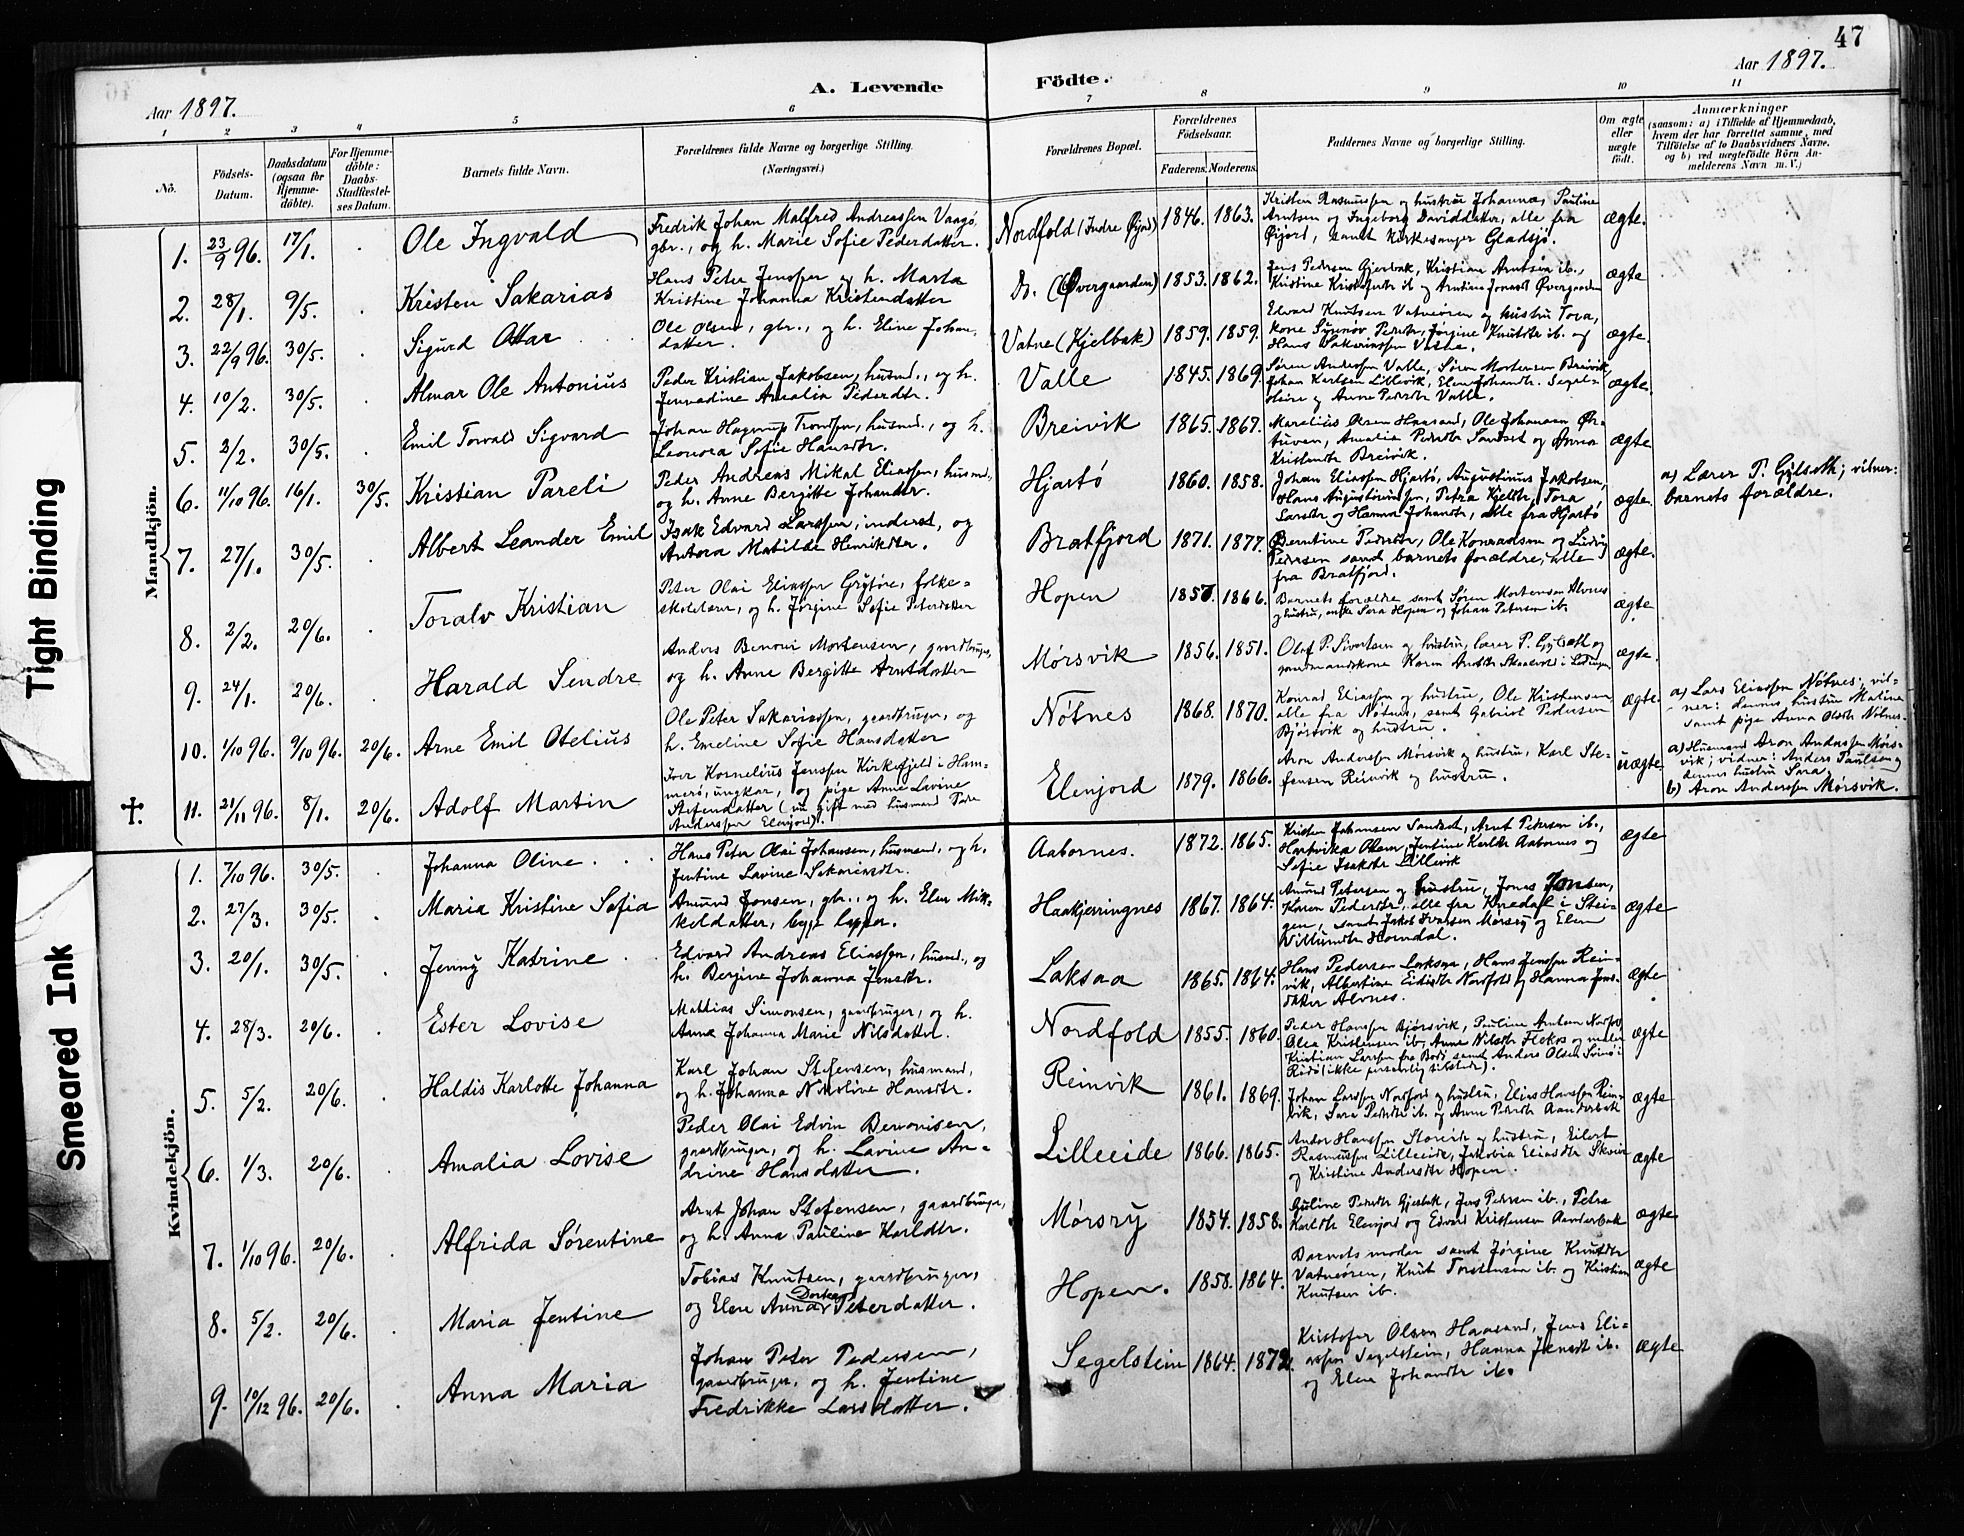 47
Aar 1897.
A. Levende
Födte.
Aar 1897.
1 2 3 4 5 6 7 8 9 10 11
No.
Födsels-Datum.
Daabsdatum (ogsaa for Hjemme-döbte).
For Hjemme-döbte: Daabs-Stadfæstel-ses Datum.
Barnets fulde Navn.
Forældrenes fulde Navne og borgerlige Stilling.
(Næringsvei.)
Forældrenes Bopæl.
Forældrenes Födselsaar.
Faderens. Moderens.
Faddernes Navne og borgerlige Stilling.
Om ægte eller uægte födt.
Anmærkninger
(saasom: a) i Tilfælde af Hjemmedaab,
hvem der har forrettet samme, med
Tilföielse af to Daabsvidners Navne.
og b) ved uegtefödte Börn An-
melderens Navn m. V.)
Tight Binding
Smeared Ink
Mandkjön.
1. 23/9 96. 17/1. Ole Ingvald
Fredrik Johan Malfred Andreassen Vaag,
gbr., og h. Marie Sofie Pedersdatter.
Nordfold (Indre Øijord) 1846. 1863.
Kristen Rasmussen og hustru Johanna, Pauline
Arntsen og Ingeborg Daviddatter, alle fra
Øijord, samt Kirkesanger Gladsjø.
ægte.
2. 28/1. 9/5. Kristen Sakarias
Hans Peter Jenssen og h. Marta
Kristine Johanna Kristendatter
Do. (Øvergaarden) 1853. 1862.
Jens Pedersen Gjerbak, Kristian Arntsen ib.,
ægte
3. 22/9 96. 30/5. Sigurd Ottar
Ole Olsen, gbr., og h. Eline Johan
datter.
Vatne (Kjelbak) 1859. 1859.
Edvard Knutsen Vatneøren og hustru Tova,
ægte.
4. 10/2. 30/5. Almar Ole Antonius
Peder Kristian Jakobsen, husmd., og h.
Amalia Pedersdtr.
Valle 1845. 1869.
Søren Andersen Valle, Søren Mortensen Breivik,
Johan Karlsen Lillevik, Elen Johandtr. Segel-
og Anne Pedersdtr Valle.
ægte.
5. 2/2. 30/5. Emil Torvald Sigvard
Johan Hagerup Trondsen, husmd., og h.
Leonora Sofie Hansdtr.
Breivik 1865. 1867.
Marelius Olsen Haasand, Ole Johansen
Amalia Pedersdtr Sandset og Anna
Breivik.
ægte
6. 11/10 96. 16/1. 30/5. Kristian Pareli
Peder Andreas Mikal Eliassen, husmd.
og h. Anne Bergitte Johansdtr.
Hjartø 1860. 1858.
Johan Eliassen Hjartø, Augustinus Jakobsen,
Hans Augustinussen, Petra Kjelsdtr, Tora
Larsdtr og Hanna Johansdtr, alle fra Hjartø
ægte
a) Lærer P. Gylseth; vitner:
barnets forældre.
7. 27/1. 30/5. Albert Leander Emil
Isak Edvard Larssen, inderst, og
Antora Matilde Henriksdtr.
Bratfjord 1871. 1877.
Berntine Pedersdtr, Ole Konradsen og Ludvig
Pedersen samt barnets forældre, alle
fra Bratfjord.
ægte.
8. 2/2. 20/6. Toralv Kristian
Peter Olai Eliassen Grytøre, folke-
skolelærer, og h. Jørgine Sofie Petersdatter
Hopen 1857. 1866.
Barnets forældre samt Søren Mortensen Alvnes
og hustru, enke Sara Hopen og Johan Petersen ib.
ægte
9. 24/1. 20/6. Harald Sendre
Anders Benoni Mortensen, gaardbruger,
og h. Anne Bergitte Arntsdatter
Mørsvik 1856. 1851.
Olaf P. Sivertsen og hustru, lærer P. Gylseth og
ægte.
10. 1/10 96. 9/10 96. 20/6. Arne Emil Otelius
Ole Peter Sakariassen, gaardbruger, og
h. Emeline Sofie Hansdatter
Nøtnes 1868. 1870.
Konrad Eliassen og hustru, Ole Kristensen
alle fra Nøtnes, samt Gabriel Pedersen
Bjørsvik og hustru.
ægte.
a) Lars Eliassen Nøtnes; vit-
ner: dennes hustru Maline
samt pige Anna Olsdtr Nøtnes.
✝. 11. 21/11 96. 8/1. 20/6. Adolf Martin
Iver Kornelius Jenssen Kirkefjeld i Ham-
merø, ungkar, og pige Anne Lavine
Stefendatter (nu gift med husmand Peder
Anderssen Elenjord).
Elenjord 1879. 1866.
Aron Anderssen Mørsvik og hustru, Karl Ste-
fensen Reinvik og hustru.
uægte
a) Husmand Aron Anderssen Mørs-
vik; vidner: Anders Paulsen og
dennes hustru Sara.
b) Aron Anderssen Mørsvik.
Kvindekjön.
1. 7/10 96. 30/5. Johanna Oline
Hans Peter Olai Johansen, husmand, og h.
Jentine Lavine Sakariasdtr.
Aabornes. 1872. 1865.
Kristen Johansen Sandset, Arnt Pedersen ib.,
Hartvika Olsen, Jentine Karlsdtr Aabornes og
Sofie Isaksdtr Lillevik
ægte
2. 27/3. 30/5. Maria Kristine Sofia
Amund Jonsen, gbr., og h. Elen Mik-
keldatter, begge lapper.
Haakjerringnes 1867. 1864.
Amund Petersen og hustru, Jonas Jonsen,
Karen Pedersdtr, alle fra i Stei-
gen, samt Jakob Ivarsen Mørsry og Elen
Horndal.
ægte
3. 20/1. 30/5. Jenny Katrine
Edvard Andreas Eliassen, husmd., og
h. Bergine Johanna Jensdtr.
Laksaa 1865. 1864.
Hans Pedersen Laksaa, Hans Jenssen Rein-
vik, Albertine Nordfold og Hanna Jens-
datter Alvnes.
ægte
4. 28/3. 20/6. Ester Lovise
Mathias Simonsen, gaardbruger, og h.
Anna Johanna Marie Nilsdatter.
Nordfold 1855. 1860.
Peder Hanssen Bjørsvik, Pauline Arntsen Nordfold
Olea Kristensen ib., Anne Nilsdtr og maler
Kristian Larssen fra Bodø samt Anders Olsen
(ikke personlig tilstede).
ægte
5. 5/2. 20/6. Haldis Karlotte Johanna
Karl Johan Stefensen, husmand,
og h. Johanna Nikoline Hansdtr.
Reinvik 1861. 1869.
Johan Larssen Nordfold og hustru, Elias Hanssen Rein-
vik, Sara Pedersdtr ib. og Anne Pedersdtr Aanderbak
ægte
6. 1/3. 20/6. Amalia Lovise
Peder Olai Edvin Benonisen,
gaardbruger, og h. Lavine An-
drine Hansdatter.
Lilleeide 1866. 1865.
Andor Hanssen Storeide og hustru, Eilert
Rasmussen Lilleeide, Jakobia Eliasdtr
og Kristine Andersdtr Hopen.
ægte
7. 1/10 96. 20/6. Alfrida Sørentine
Arnt Johan Stefensen, gaardbruger,
og h. Anna Pauline Karlsdtr.
Mørsry 1854. 1858.
Guline Pedersdtr Gjerbak, Jens Pedersen ib., Petra
Karlsdtr Elenjord og Edvard Kristensen Aanderbak
ægte
8. 5/2. 20/6. Maria Jentine
Tobias Knutsen, gaardbruger,
og Elen Anna Dorkas Petersdatter.
Hopen. 1858. 1864.
Barnets moder samt Jørgine Knutsdtr
Vatneøren, Knut Torstensen ib. og Kristian
Knutsen ib.
ægte
9. 10/12 96. 20/6. Anna Maria
Johan Peter Pedersen,
gaardbruger, og h. Jentine
Fredrikke Larsdatter.
Segelstein 1864. 1872.
Kristofer Olsen Haasand, Jens Eli-
assen Segelstein, Hanna Jensdtr ib.
og Elen Johansdtr ib.
ægte